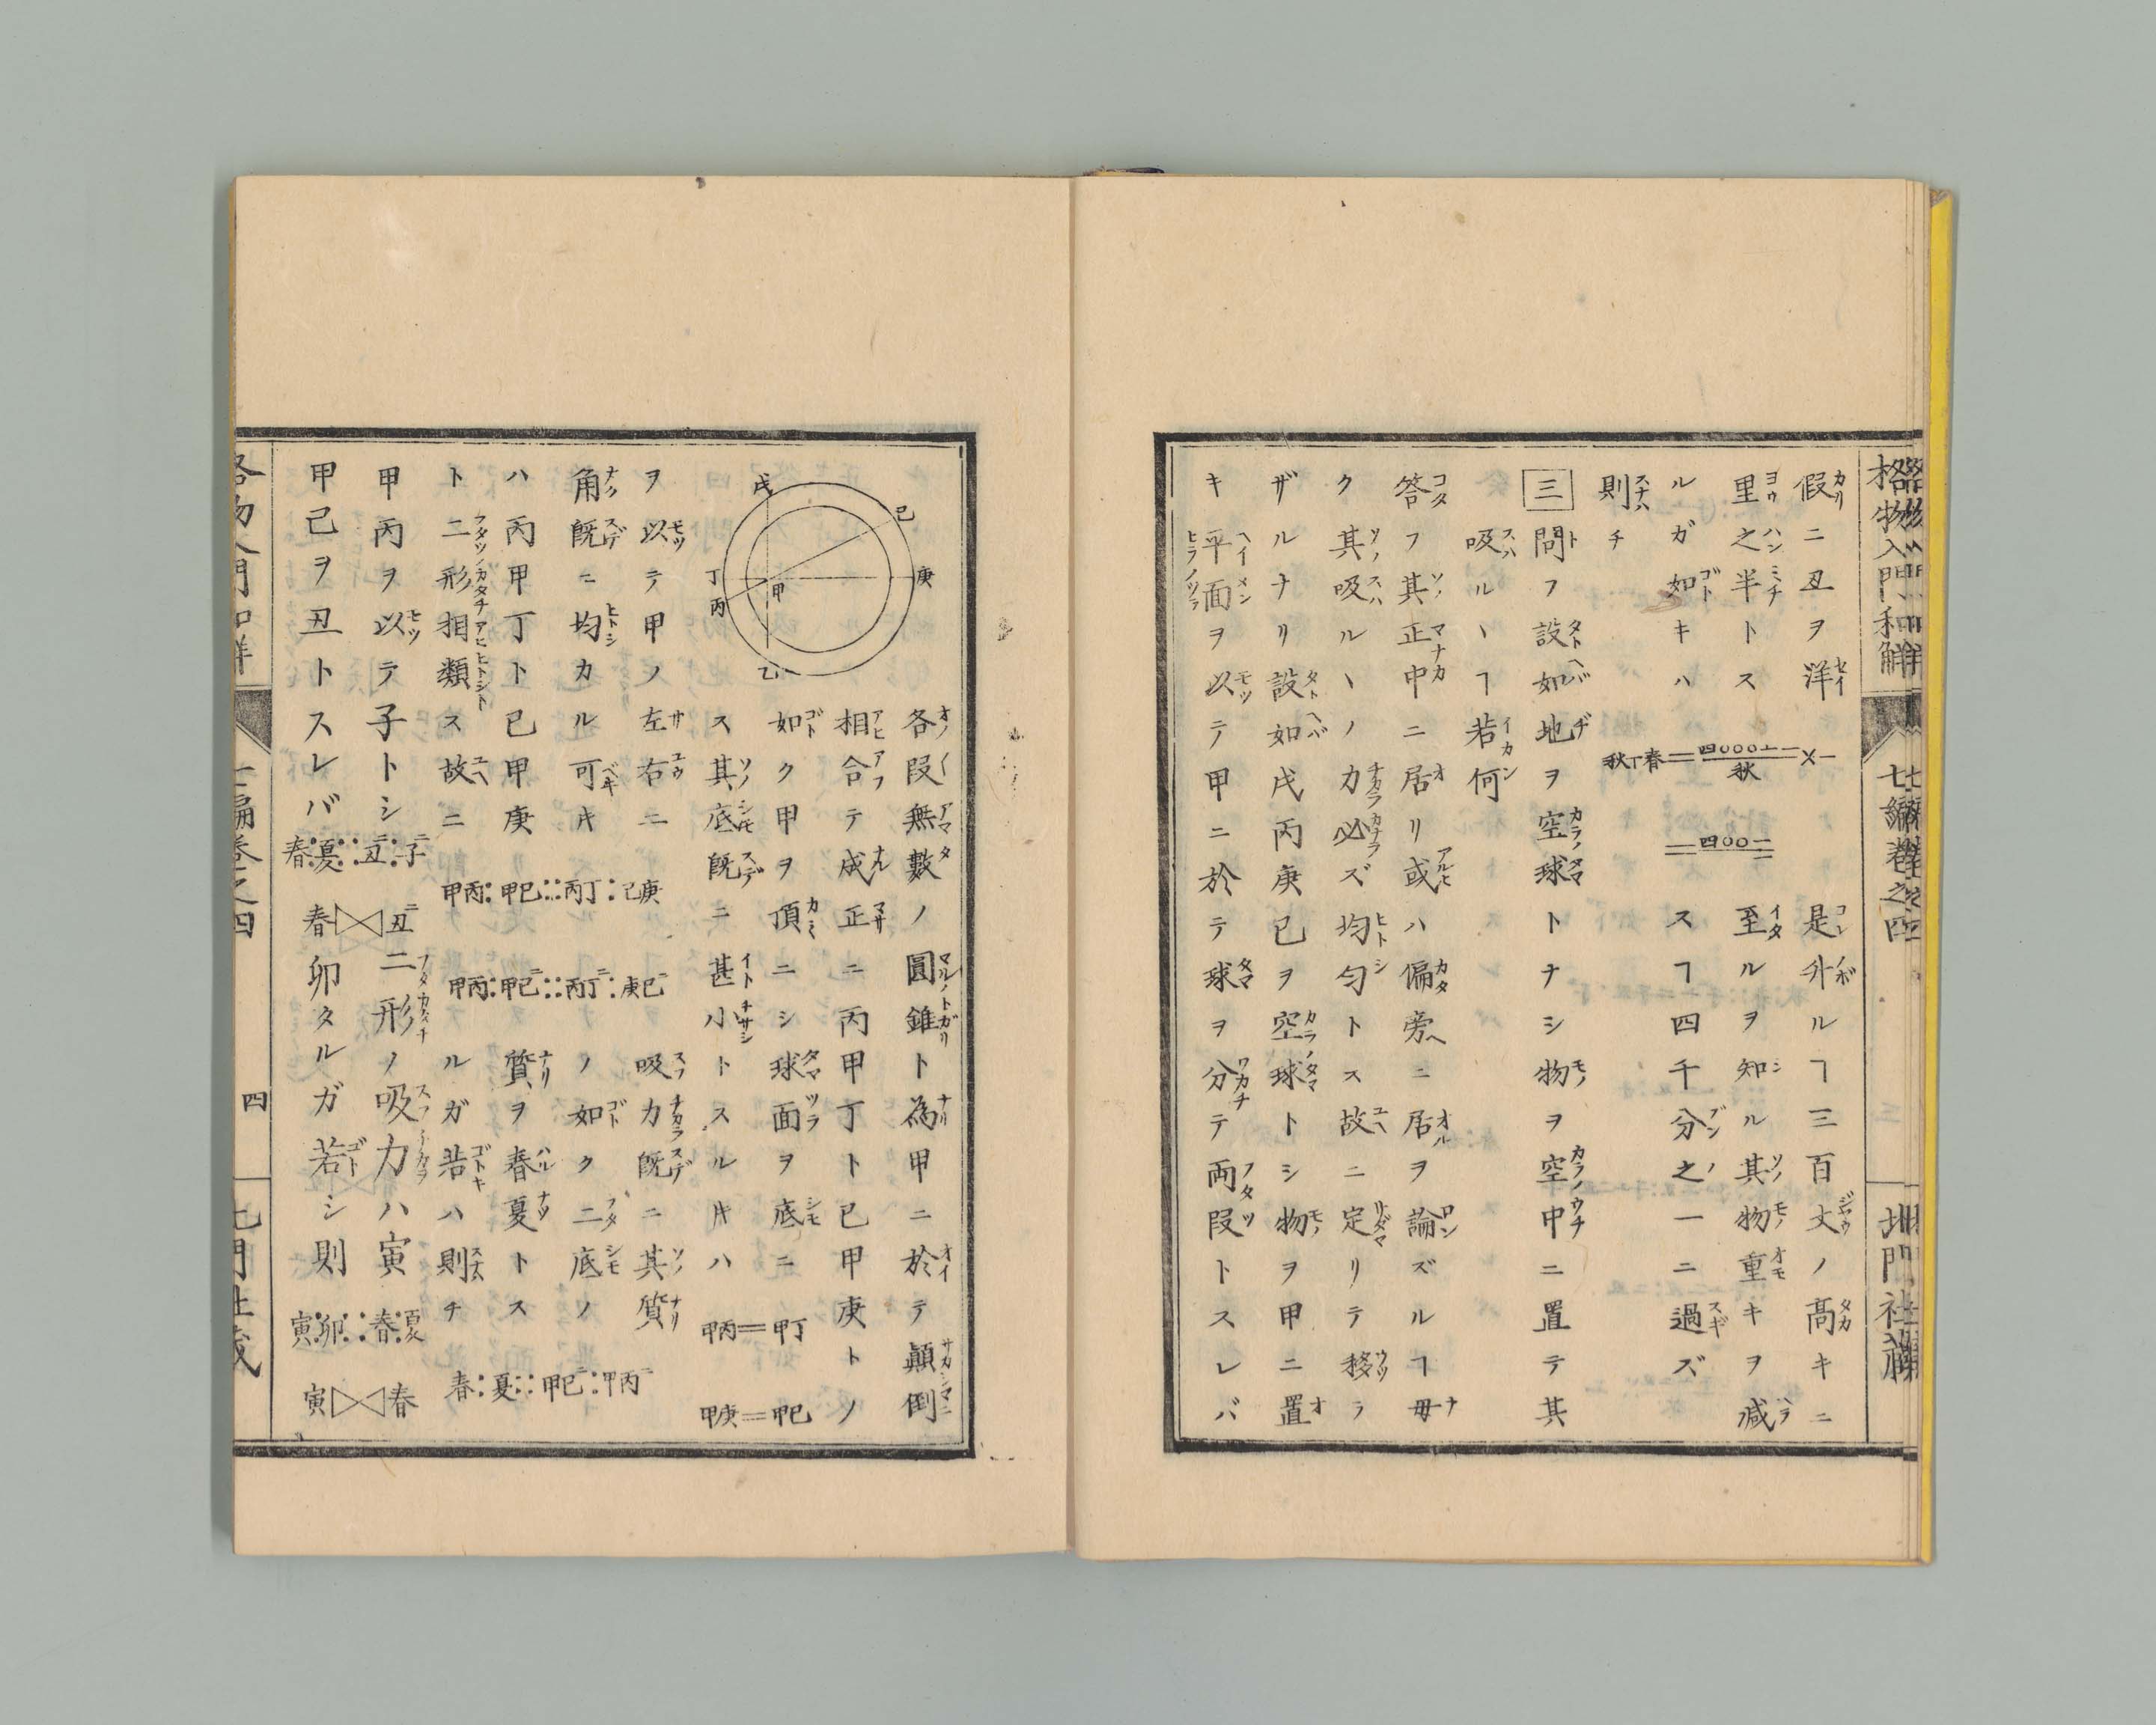 格物入門和解 七編巻之四 北門社蔵
假ニ丑ヲ洋
里之半トス
ルガ如キハ
則チ
秋丅春＝四〇〇〇二一/秋×一
＝四〇〇一＝
是升ルヿ三百丈ノ高キニ
至ルヲ知ル其物重キヲ減
スヿ四千分之一ニ過ズ
三 問フ設如地ヲ空球トナシ物ヲ空中ニ置テ其
吸ルヽヿ若何
答フ其正中ニ居リ或ハ偏旁ニ居ヲ論ズルヿ毋
ク其吸ルヽノ力必ズ均匀トス故ニ定リテ移ラ
ザルナリ設如戊丙庚已ヲ空球トシ物ヲ甲ニ置
キ平面ヲ以テ甲ニ於テ球ヲ分テ両段トスレバ
各段無數ノ圓錐ト為甲ニ於テ顛倒
相合テ成正ニ丙甲丁ト已甲庚トノ
如ク甲ヲ頂ニシ球面ヲ底ニ
ス其底既ニ甚小トスル𪜈ハ
甲丙＝甲丁
甲庚＝甲已
戊
已
庚
甲
丁
丙
乙
ヲ以テ甲ノ左右ニ
角既ニ均カル可キ
ハ丙甲丁ト已甲庚
ト二形相類ス故ニ
甲丙:甲已::丙丁:己庚
甲丙:甲已::丙丁:庚已
吸力既ニ其質
ノ如ク二底ノ
質ヲ春夏トス
ルガ若キハ則チ
春:夏::甲已:甲丙
甲丙ヲ以テ子トシ
甲己ヲ丑トスレバ
春:夏::丑:子
春 丑
二形ノ吸力ハ寅
卯タルガ若シ則
寅:卯::春:夏
寅 春
格物入門和解 七編巻之四 四 北門社蔵